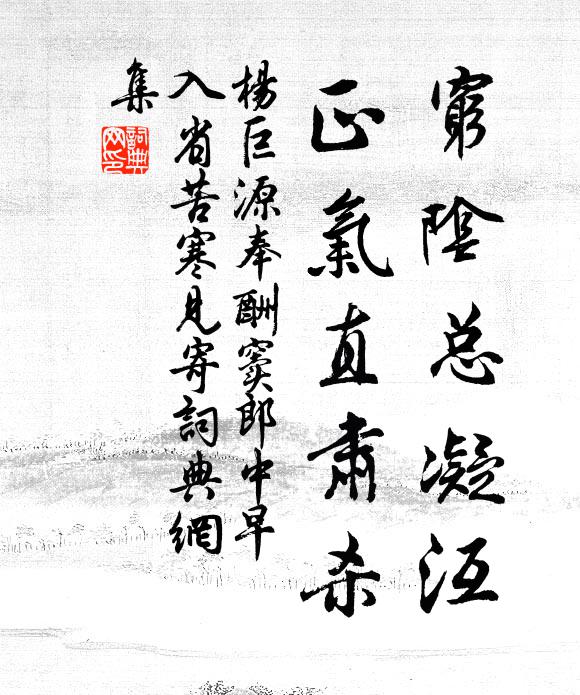 窮陰总凝沍
正氣直肅杀
楊巨源奉酬竇郎中早
入省苦寒見寄詞典網
集
詞典網印